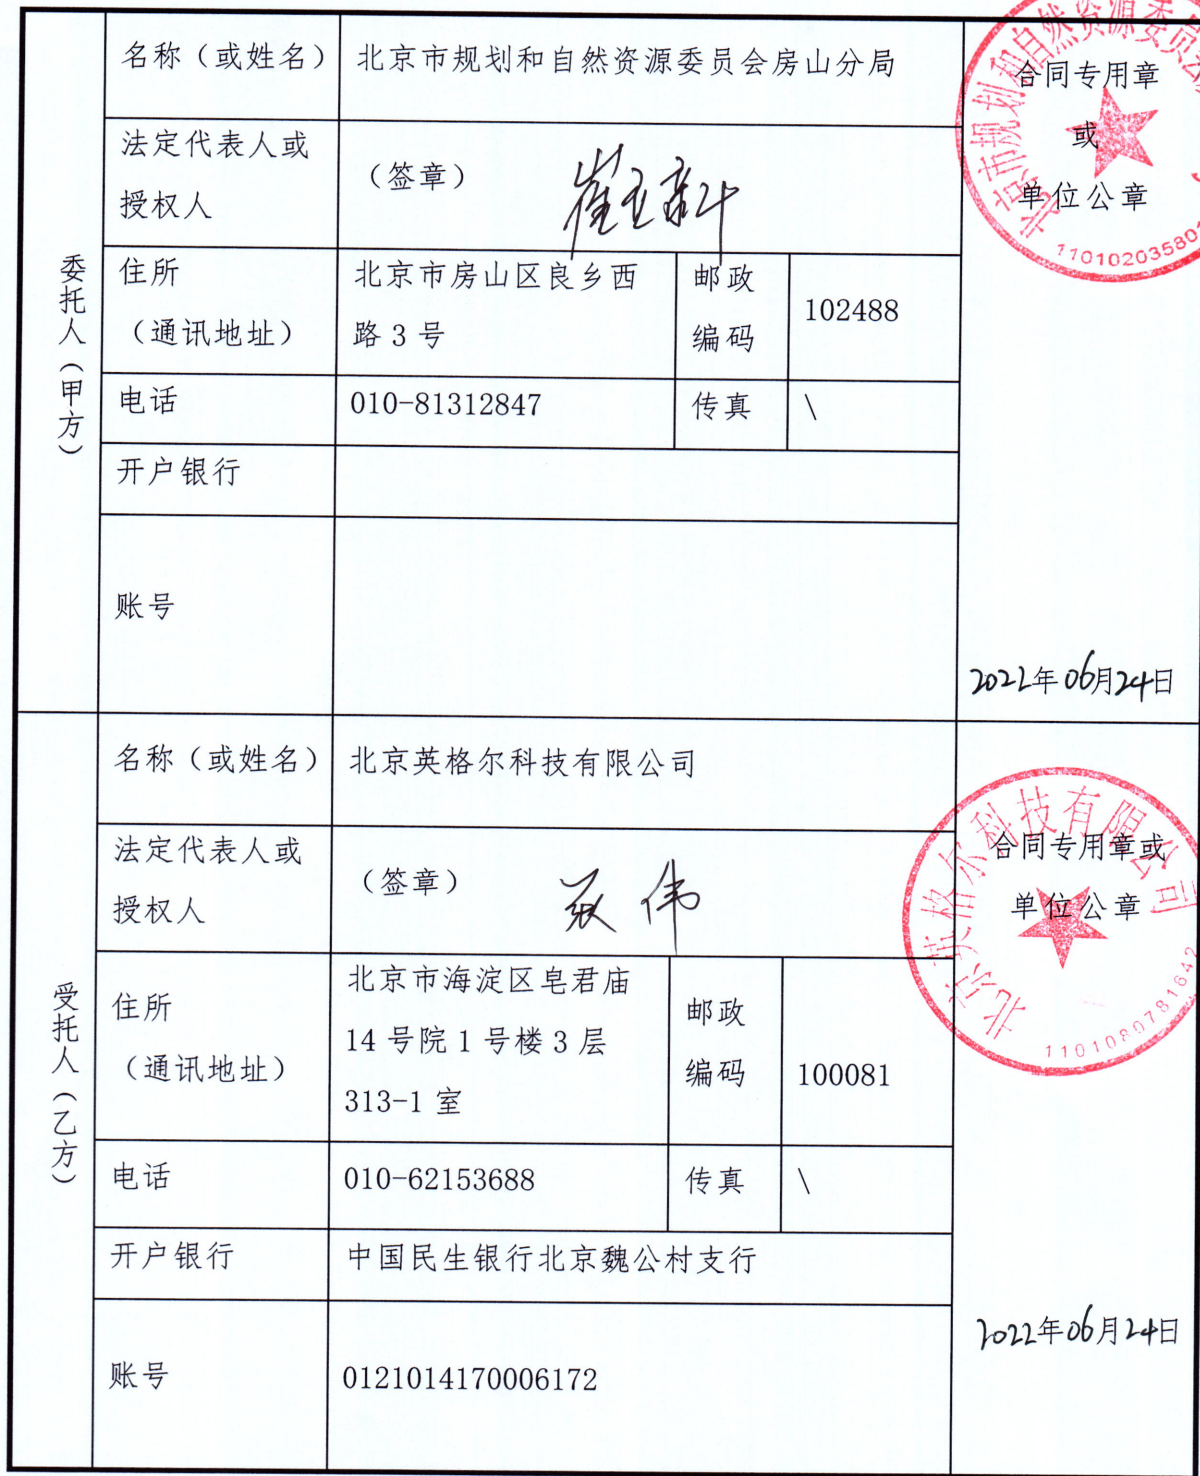 委托人（甲方）
名称（或姓名）
北京市规划和自然资源委员会房山分局
合同专用章
或
单位公章
北京市规划和自然资源委员会
11010203580
法定代表人或
授权人
（签章）
住所
（通讯地址）
北京市房山区良乡西
路 3 号
邮政
编码
102488
电话
010-81312847
传真
\
开户银行
账号
2022年06月24日
受托人（乙方）
名称（或姓名）
北京英格尔科技有限公司
合同专用章或
单位公章
北京英格尔科技有限公司
1101080781642
法定代表人或
授权人
（签章）
住所
（通讯地址）
北京市海淀区皂君庙
14 号院 1 号楼 3 层
313-1 室
邮政
编码
100081
电话
010-62153688
传真
\
开户银行
中国民生银行北京魏公村支行
账号
0121014170006172
2022年06月24日